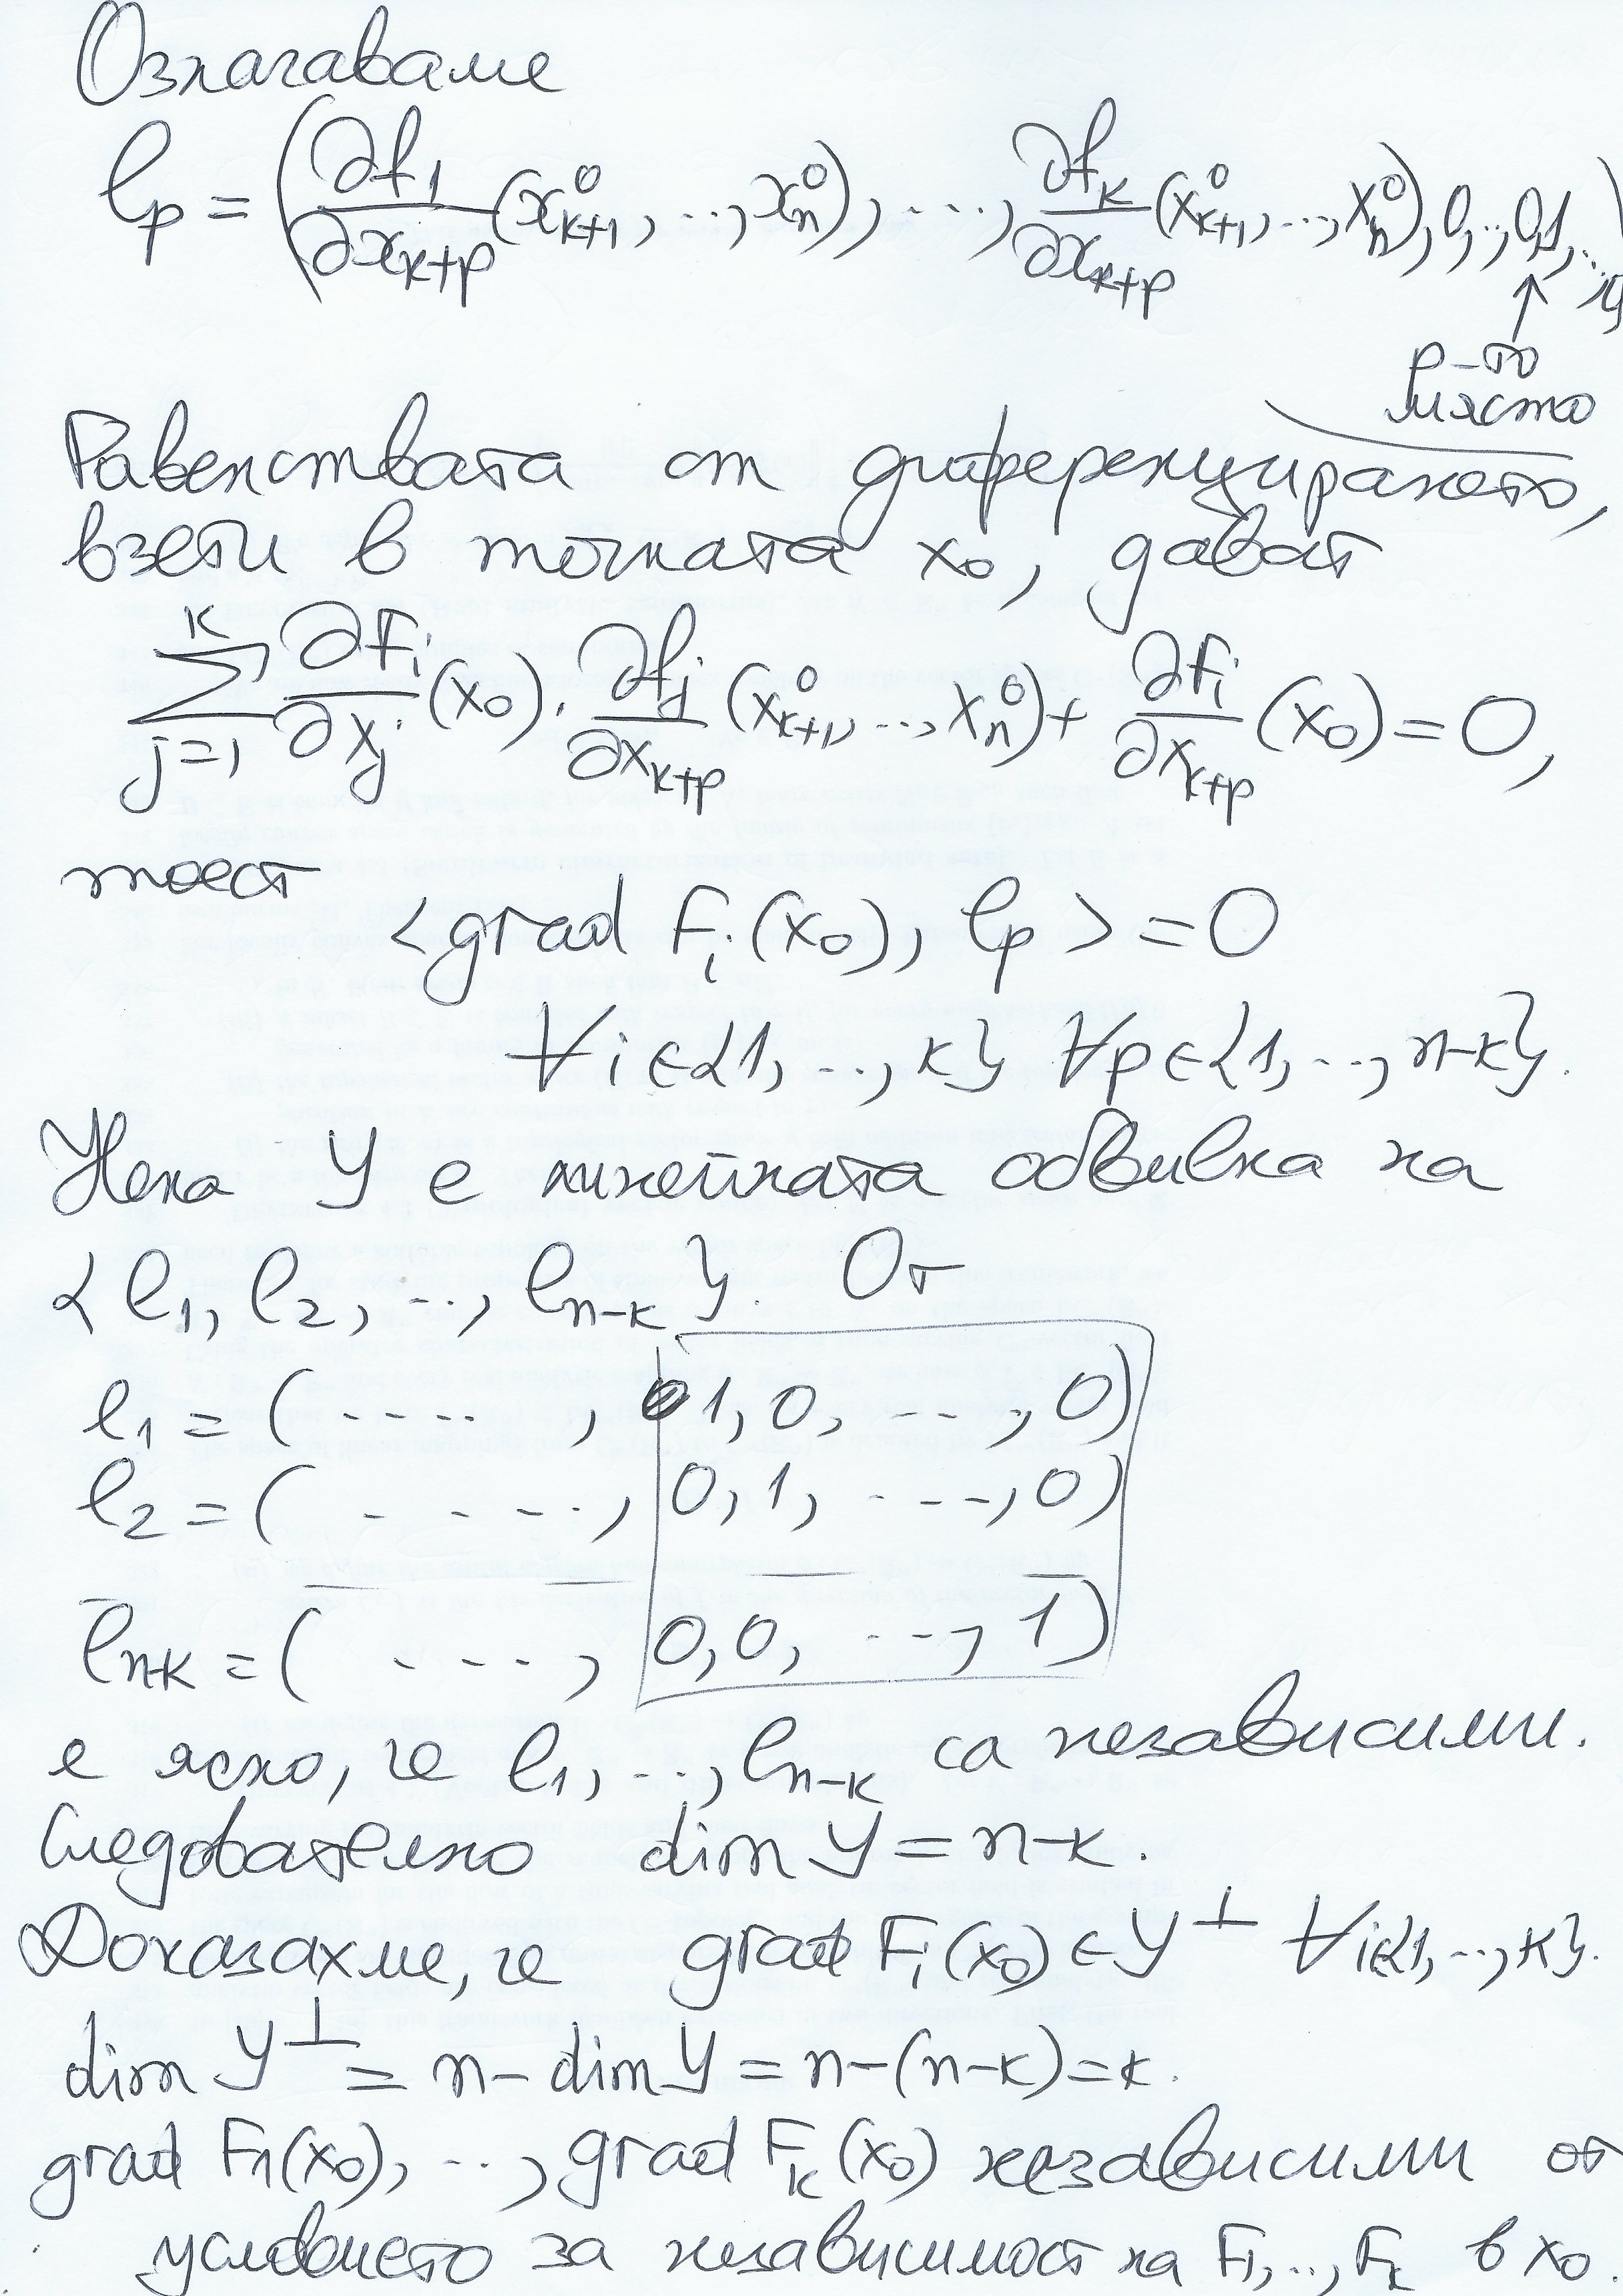 Означаваме
l_p = (∂f_1/∂x_{k+p} (x^0_{k+1}, ..., x^0_n), ..., ∂f_k/∂x_{k+p} (x^0_{k+1}, ..., x^0_n), 0, .., 0, 1, ...
↑
p-то
място
Равенствата от диференцирането,
взети в точката x_0, дават
∑_{j=1}^{k} ∂F_i/∂x_j (x_0) . ∂f_j/∂x_{k+p} (x^0_{k+1}, ..., x^0_n) + ∂F_i/∂x_{k+p} (x_0) = 0,
тоест
<grad F_i(x_0), l_p> = 0
∀i∈{1, ..., k} ∀p∈{1, ..., n-k}.
Нека Y е линейната обвивка на
{l_1, l_2, ..., l_{n-k}}. От
l_1 = ( - - - - , 1, 0, - - - , 0)
l_2 = ( - - - - , 0, 1, - - - , 0)
l_{n-k} = ( - - - - , 0, 0, - - - , 1)
е ясно, че l_1, ..., l_{n-k} са независими.
Следователно dim Y = n-k.
Доказахме, че grad F_i(x_0) ∈ Y^⊥ ∀i∈{1, .., k}.
dim Y^⊥ = n - dim Y = n-(n-k) = k.
grad F_1(x_0), ..., grad F_k(x_0) независими от
условието за независимост на F_1, .., F_k в x_0